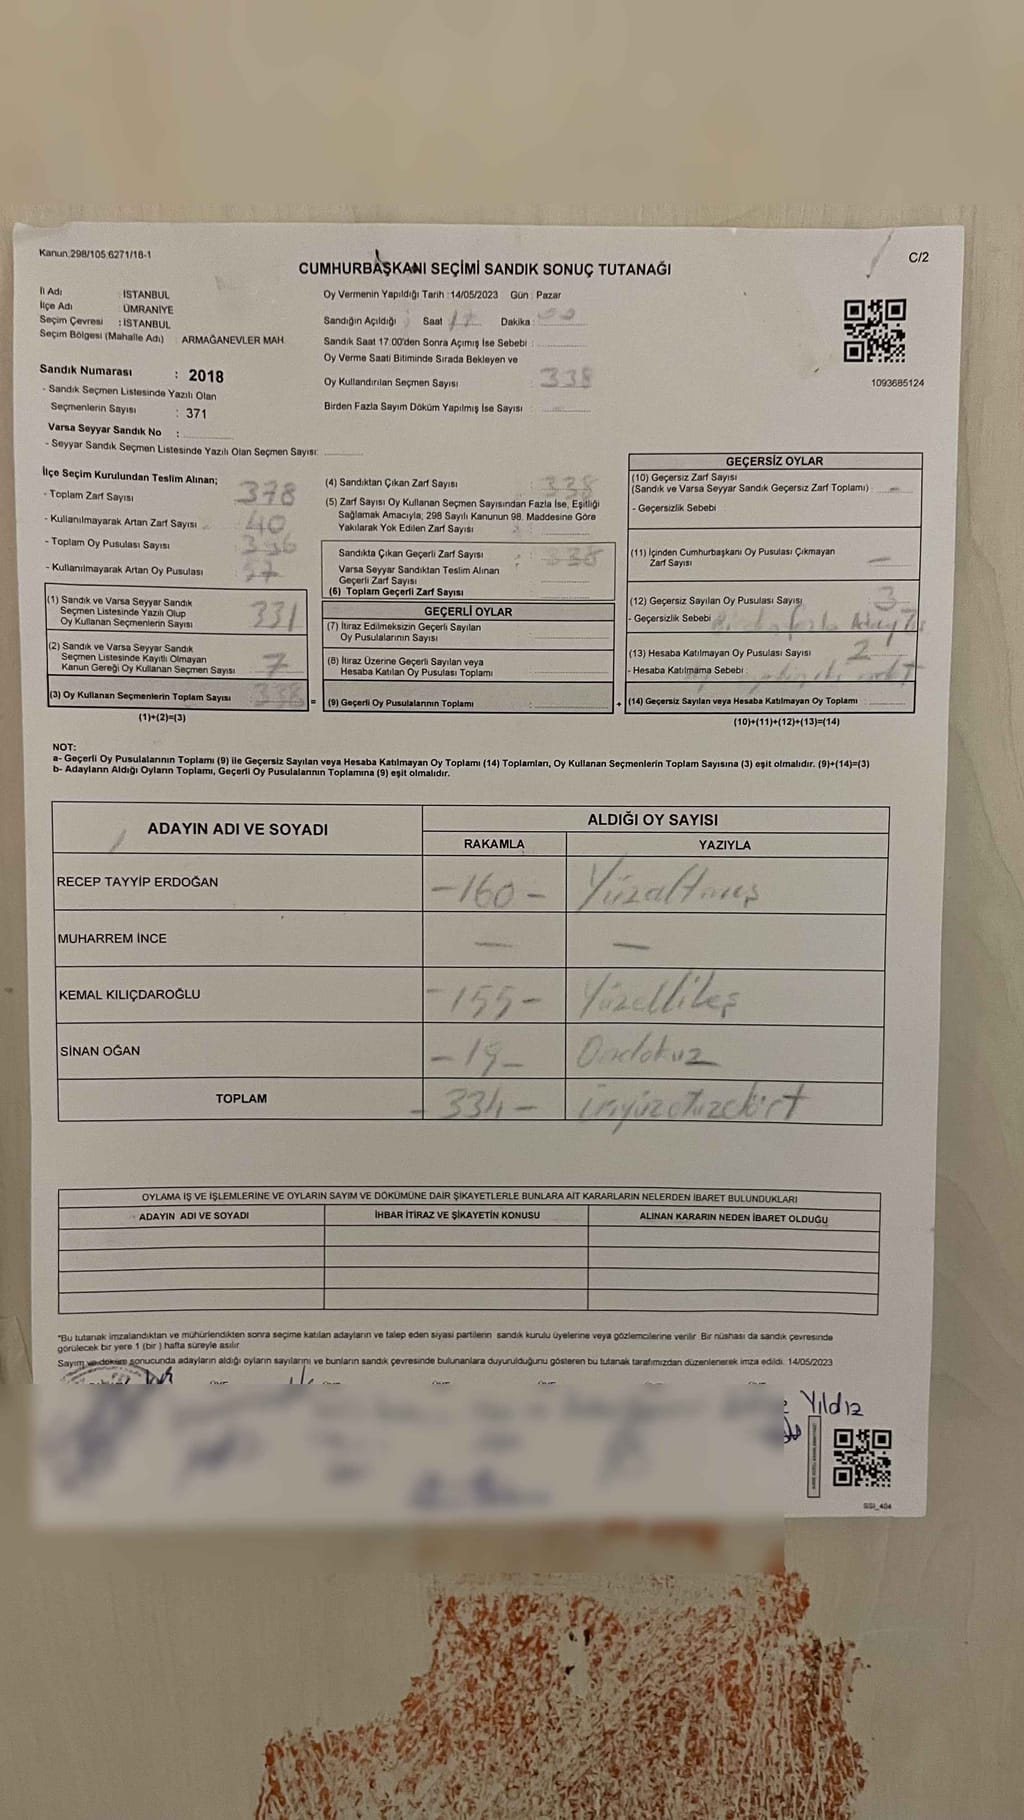 Kanun:298/105 6271/18-1
C/2
CUMHURBAŞKANI SEÇİMİ SANDIK SONUÇ TUTANAĞI
İl Adı : İSTANBUL
İlçe Adı : ÜMRANİYE
Seçim Çevresi : İSTANBUL
Seçim Bölgesi (Mahalle Adı) : ARMAĞANEVLER MAH.
Oy Vermenin Yapıldığı Tarih :14/05/2023 Gün : Pazar
Sandığın Açıldığı Saat 17 Dakika :
Sandık Saat 17:00'den Sonra Açımış İse Sebebi :
Oy Verme Saati Bitiminde Sırada Bekleyen ve
Oy Kullandırılan Seçmen Sayısı : 338
Birden Fazla Sayım Döküm Yapılmış İse Sayısı :
1093685124
Sandık Numarası : 2018
- Sandık Seçmen Listesinde Yazılı Olan
Seçmenlerin Sayısı : 371
Varsa Seyyar Sandık No :
- Seyyar Sandık Seçmen Listesinde Yazılı Olan Seçmen Sayısı:
İlçe Seçim Kurulundan Teslim Alınan;
- Toplam Zarf Sayısı : 378
- Kullanılmayarak Artan Zarf Sayısı : 40
- Toplam Oy Pusulası Sayısı :
- Kullanılmayarak Artan Oy Pusulası : 57
(1) Sandık ve Varsa Seyyar Sandık
Seçmen Listesinde Yazılı Olup
Oy Kullanan Seçmenlerin Sayısı 331
(2) Sandık ve Varsa Seyyar Sandık
Seçmen Listesinde Kayıtlı Olmayan
Kanun Gereği Oy Kullanan Seçmen Sayısı 7
(3) Oy Kullanan Seçmenlerin Toplam Sayısı 338
(1)+(2)=(3)
(4) Sandıktan Çıkan Zarf Sayısı : 338
(5) Zarf Sayısı Oy Kullanan Seçmen Sayısından Fazla İse, Eşitliği
Sağlamak Amacıyla, 298 Sayılı Kanunun 98. Maddesine Göre
Yakılarak Yok Edilen Zarf Sayısı :
Sandıkta Çıkan Geçerli Zarf Sayısı : 338
Varsa Seyyar Sandıktan Teslim Alınan
Geçerli Zarf Sayısı
(6) Toplam Geçerli Zarf Sayısı
GEÇERLİ OYLAR
(7) İtiraz Edilmeksizin Geçerli Sayılan
Oy Pusulalarının Sayısı
(8) İtiraz Üzerine Geçerli Sayılan veya
Hesaba Katılan Oy Pusulası Toplamı
= (9) Geçerli Oy Pusulalarının Toplamı :
GEÇERSİZ OYLAR
(10) Geçersiz Zarf Sayısı
(Sandık ve Varsa Seyyar Sandık Geçersiz Zarf Toplamı) : -
- Geçersizlik Sebebi
(11) İçinden Cumhurbaşkanı Oy Pusulası Çıkmayan
Zarf Sayısı -
(12) Geçersiz Sayılan Oy Pusulası Sayısı 3
- Geçersizlik Sebebi Birden fazla Aday
(13) Hesaba Katılmayan Oy Pusulası Sayısı 2
- Hesaba Katılmama Sebebi
+ (14) Geçersiz Sayılan veya Hesaba Katılmayan Oy Toplamı :
(10)+(11)+(12)+(13)=(14)
NOT:
a- Geçerli Oy Pusulalarının Toplamı (9) ile Geçersiz Sayılan veya Hesaba Katılmayan Oy Toplamı (14) Toplamları, Oy Kullanan Seçmenlerin Toplam Sayısına (3) eşit olmalıdır. (9)+(14)=(3)
b- Adayların Aldığı Oyların Toplamı, Geçerli Oy Pusulalarının Toplamına (9) eşit olmalıdır.
ADAYIN ADI VE SOYADI
ALDIĞI OY SAYISI
RAKAMLA YAZIYLA
RECEP TAYYİP ERDOĞAN -160- Yüzaltmış
MUHARREM İNCE - -
KEMAL KILIÇDAROĞLU -155- Yüzellibeş
SİNAN OĞAN -19- Ondokuz
TOPLAM -334-
OYLAMA İŞ VE İŞLEMLERİNE VE OYLARIN SAYIM VE DÖKÜMÜNE DAİR ŞİKAYETLERLE BUNLARA AİT KARARLARIN NELERDEN İBARET BULUNDUKLARI
ADAYIN ADI VE SOYADI İHBAR İTİRAZ VE ŞİKAYETİN KONUSU ALINAN KARARIN NEDEN İBARET OLDUĞU
*Bu tutanak imzalandıktan ve mühürlendikten sonra seçime katılan adayların ve talep eden siyasi partilerin sandık kurulu üyelerine veya gözlemcilerine verilir. Bir nüshası da sandık çevresinde
görülecek bir yere 1 (bir) hafta süreyle asılır
Sayım ve döküm sonucunda adayların aldığı oyların sayılarını ve bunların sandık çevresinde bulunanlara duyurulduğunu gösteren bu tutanak tarafımızdan düzenlenerek imza edildi. 14/05/2023
Yıldız
SSİ_404